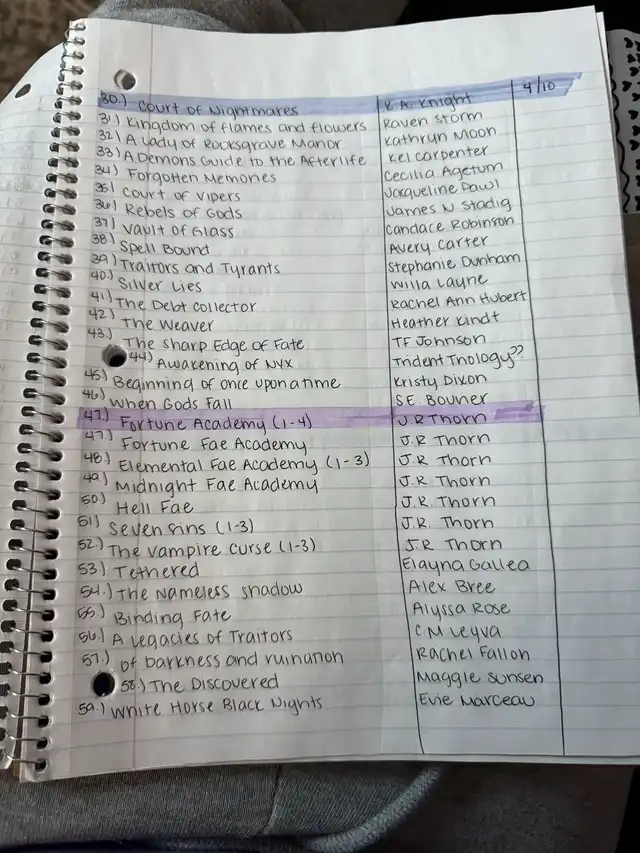 30.) Court of Nightmares K.A. Knight 4/10
31.) Kingdom of flames and flowers Raven Storm
32.) A Lady of Rooksgrave Manor Kathryn Moon
33.) A Demons Guide to the Afterlife Kel Carpenter
34.) Forgotten Memories Cecilia Agetun
35.) Court of Vipers Jacqueline Pawl
36.) Rebels of Gods James N Stadig
37.) Vault of Glass Candace Robinson
38.) Spell Bound Avery Carter
39.) Traitors and Tyrants Stephanie Dunham
40.) Silver Lies Willa Layne
41.) The Debt Collector Rachel Ann Hubert
42.) The Weaver Heather Kindt
43.) The Sharp Edge of Fate TF Johnson
44.) Awakening of NYX Trident Tnology??
45.) Beginning of once upon a time Kristy Dixon
46.) When Gods Fall S.E. Bouner
47.) Fortune Academy (1-4) J.R Thorn
47.) Fortune Fae Academy J.R Thorn
48.) Elemental Fae Academy (1-3) J.R Thorn
49.) Midnight Fae Academy J.R Thorn
50.) Hell Fae J.R. Thorn
51.) Seven Sins (1-3) J.R. Thorn
52.) The Vampire Curse (1-3) J.R Thorn
53.) Tethered Elayna Gallea
54.) The Nameless Shadow Alex Bree
55.) Binding Fate Alyssa Rose
56.) A Legacies of Traitors C M Leyva
57.) Of Darkness and ruination Rachel Fallon
58.) The Discovered Maggie Sunsen
59.) White Horse Black Nights Evie Marceau